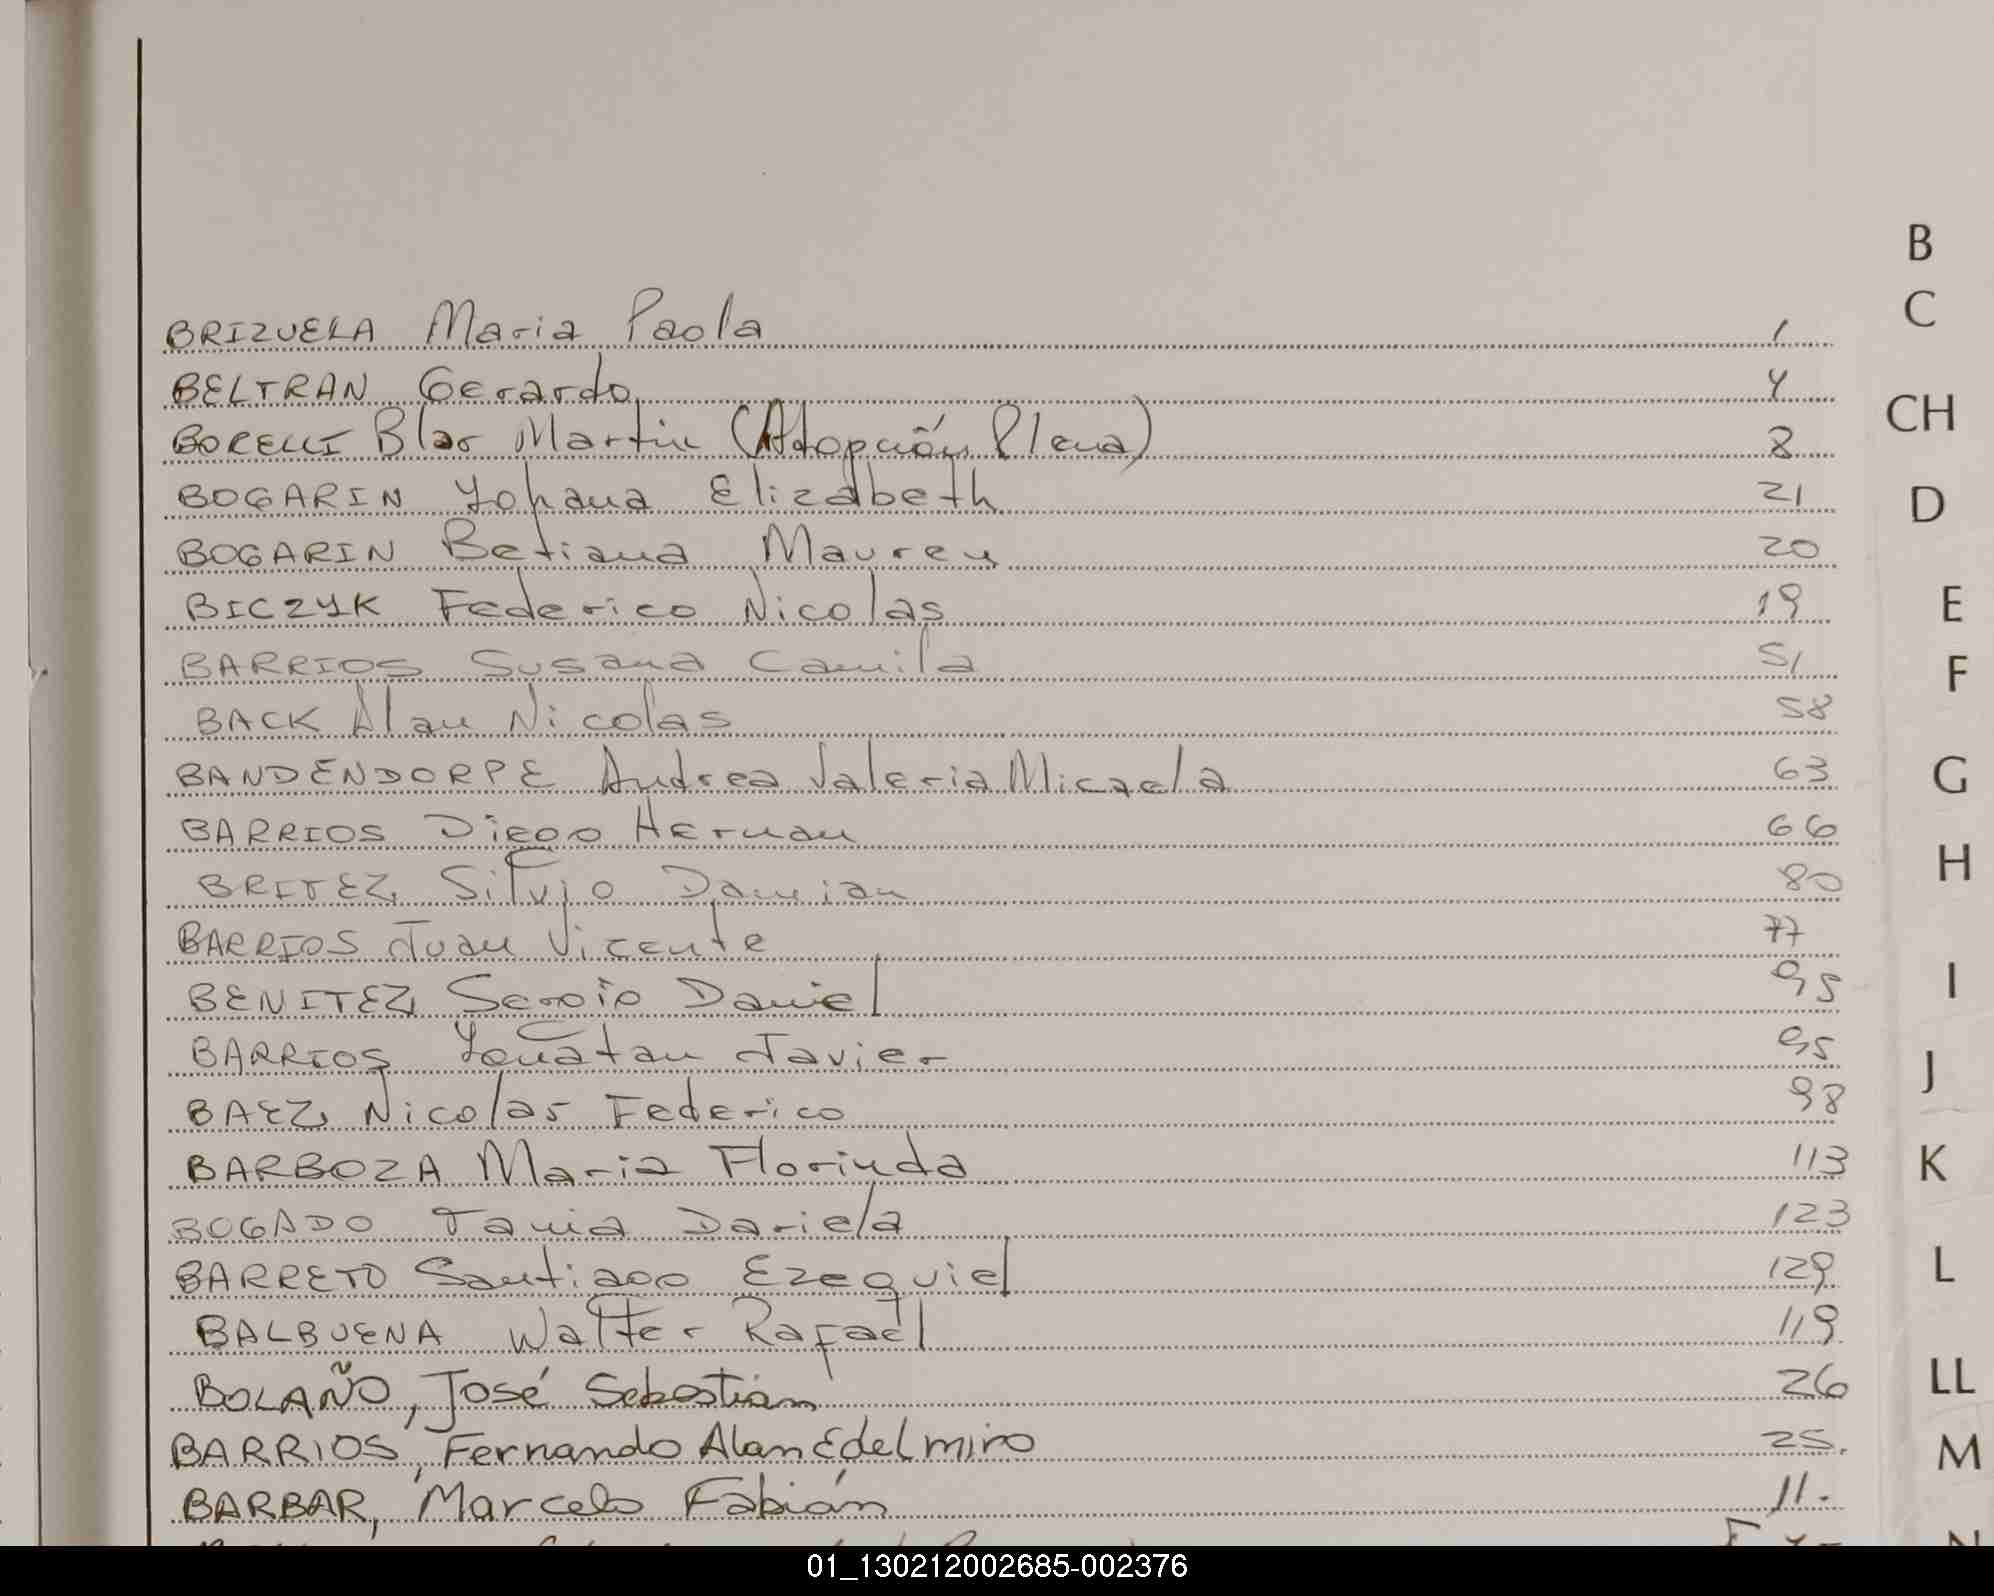 BRIZUELA Maria Paola 1
BELTRAN Gerardo 4
BORELLI Blas Martin (Adopción Plena) 8
BOGARIN Yohana Elizabeth 21
BOGARIN Betiana Mauren 20
BICZYK Federico Nicolas 19
BARRIOS Susana Camila 51
BACK Alan Nicolas 58
BANDENDORPE Andrea Valeria Micaela 63
BARRIOS Diego Hernan 66
BRITEZ Silvio Damian 80
BARRIOS Juan Vicente 77
BENITEZ Sergio Daniel 95
BARRIOS Yonatan Javier 95
BAEZ Nicolas Federico 98
BARBOZA Maria Florinda 113
BOGADO Tania Dariela 123
BARRETO Santiago Ezequiel 129
BALBUENA Walter Rafael 119
BOLAÑO, José Sebastián 26
BARRIOS, Fernando Alan Edelmiro 25.
BARBAR, Marcelo Fabián 11.
B
C
CH
D
E
F
G
H
I
J
K
L
LL
M
N
01_130212002685-002376